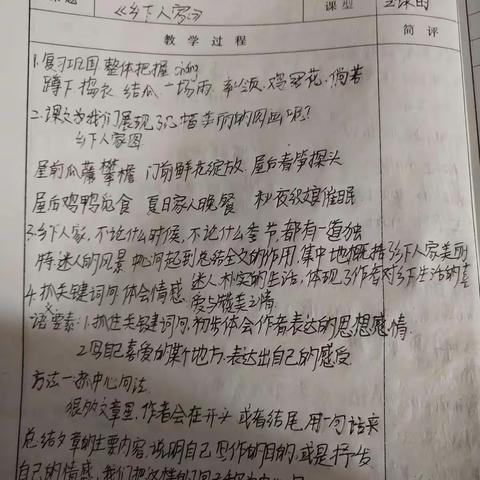 《乡下人家》 课型
教学过程 简评
1.复习巩固 整体把握
蹲下 捣衣 结瓜 一场雨 率领 鸡冠花 倘若
2.课文为我们展现了几幅美丽的图画呢?
乡下人家图
屋前瓜藤攀檐 门前鲜花绽放 屋后春笋探头
屋后鸡鸭觅食 夏日家人晚餐 秋夜纺织娘催眠
3.乡下人家,不论什么时候,不论什么季节,都有一道独
特迷人的风景 中心句起到总结全文的作用,集中地概括了乡下人家美丽
迷人、朴实的生活,体现了作者对乡下生活的喜
4.抓关键词句 体会情感. 爱与赞美之情
语文要素:1.抓住关键词句,初步体会作者表达的思想感情.
2.写自己喜爱的某个地方,表达出自己的感受
方法一:抓中心句法
很多文章里,作者会在开头或者结尾,用一句话来
总结文章的主要内容,说明自己写作的目的,或是抒发
自己的情感,我们把这样的句子